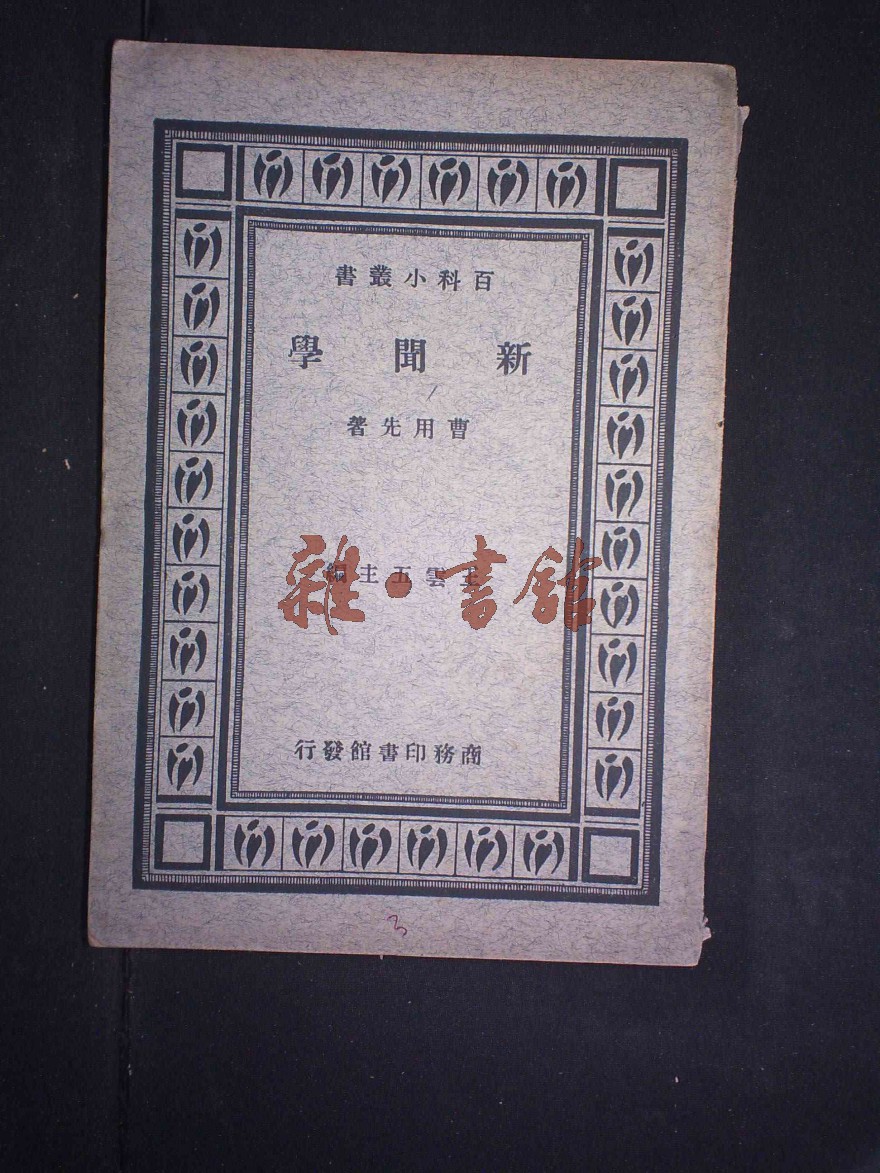 百科小叢書
新聞學
曹用先著
王雲五主編
雜·書館
商務印書館發行
3